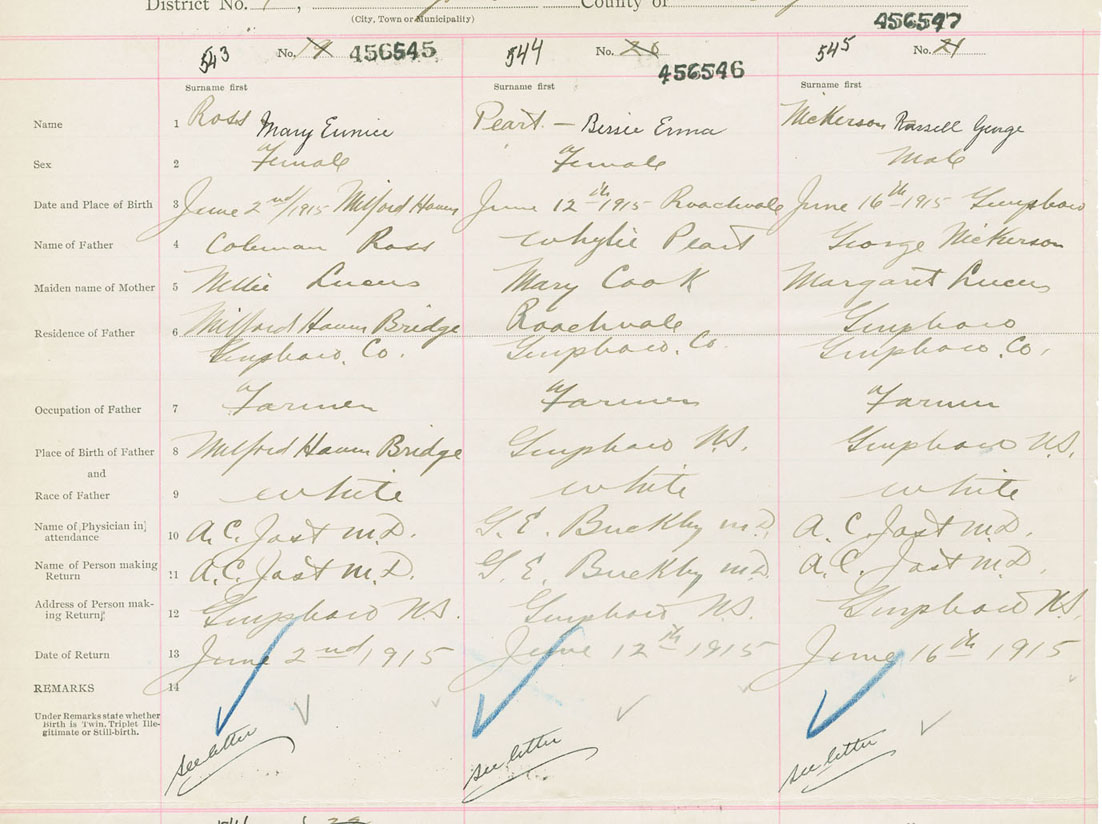 District No. County of
(City, Town or Municipality)
456547
543 No. 19 456545 544 No. 20 545 No. 21
456546
Surname first Surname first Surname first
Name 1 Ross Mary Eunice Peart - Bessie Erma McKerson Russell George
Sex 2 Female Female Male
Date and Place of Birth 3 June 2nd/1915 Milford Haven June 12th 1915 Roachvale June 16th 1915 Guysboro
Name of Father 4 Coleman Ross Whylie Peart George McKerson
Maiden name of Mother 5 Nellie Lucas Mary Cook Margaret Lucas
Residence of Father 6 Milford Haven Bridge Roachvale Guysboro
Guysboro, Co. Guysboro, Co. Guysboro, Co,
Occupation of Father 7 Farmer Farmer Farmer
Place of Birth of Father 8 Milford Haven Bridge Guysboro N.S. Guysboro N.S.
and
Race of Father 9 white white white
Name of Physician in attendance 10 A. C. Jost M.D. G. E. Buckley M.D. A. C. Jost M.D.
Name of Person making Return 11 A. C. Jost M.D. G. E. Buckley M.D. A. C. Jost M.D.
Address of Person making Return 12 Guysboro N.S. Guysboro N.S. Guysboro N.S.
Date of Return 13 June 2nd, 1915 June 12th 1915 June 16th 1915
REMARKS 14
Under Remarks state whether
Birth is Twin, Triplet Ille-
gitimate or Still-birth.
see letter see letter see letter